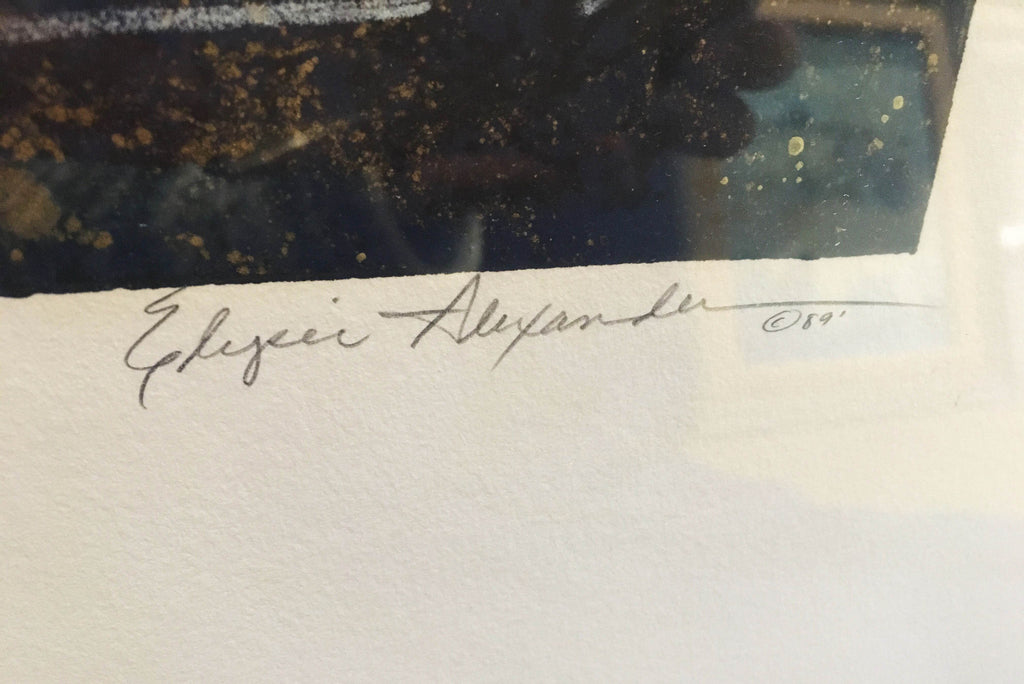 Elysei Alexander ©89'